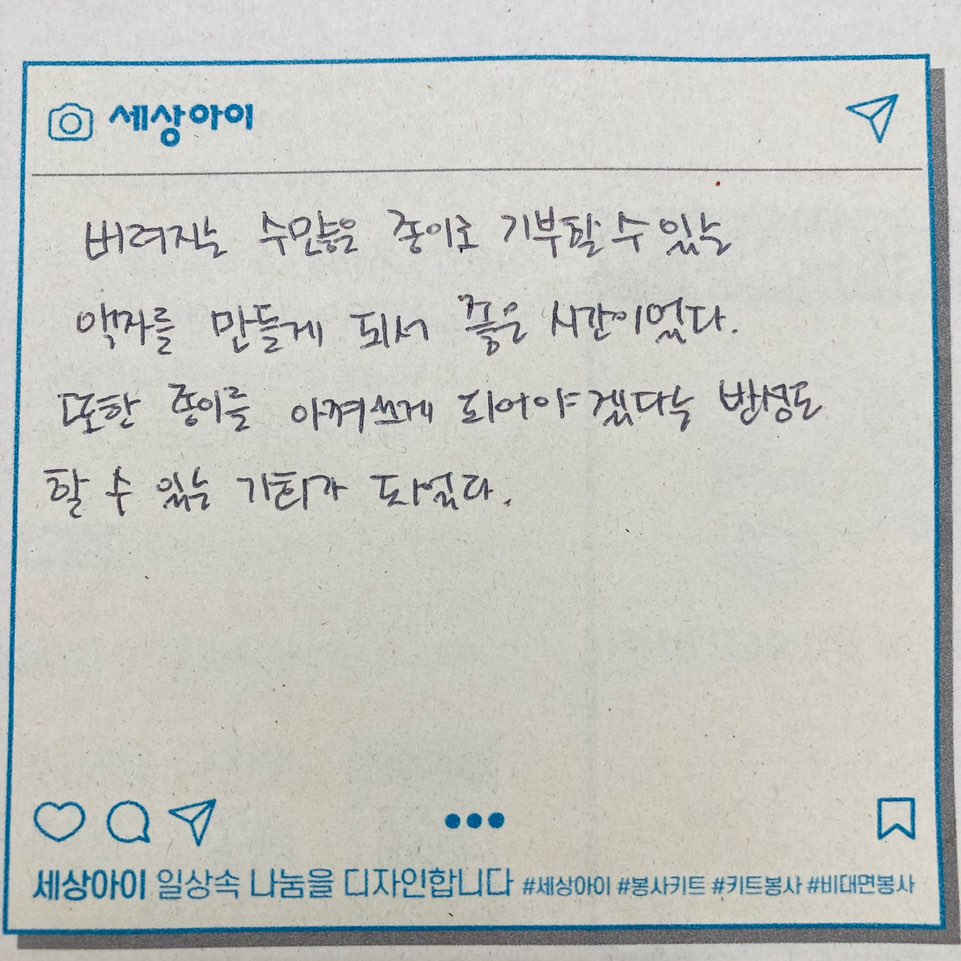 세상아이
버려지는 수많은 종이로 기부할 수 있는
액자를 만들게 되서 좋은 시간이었다.
또한 종이를 아껴쓰게 되어야겠다는 반성도
할 수 있는 기회가 되었다.
세상아이 일상속 나눔을 디자인합니다 #세상아이 #봉사키트 #키트봉사 #비대면봉사